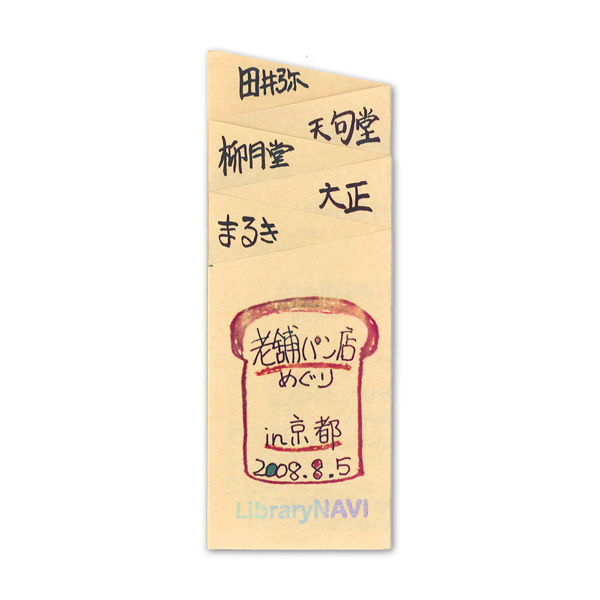 田井弥
天句堂
柳月堂
大正
まるき
老舗パン店
めぐり
in京都
2008.8.5
LibraryNAVI